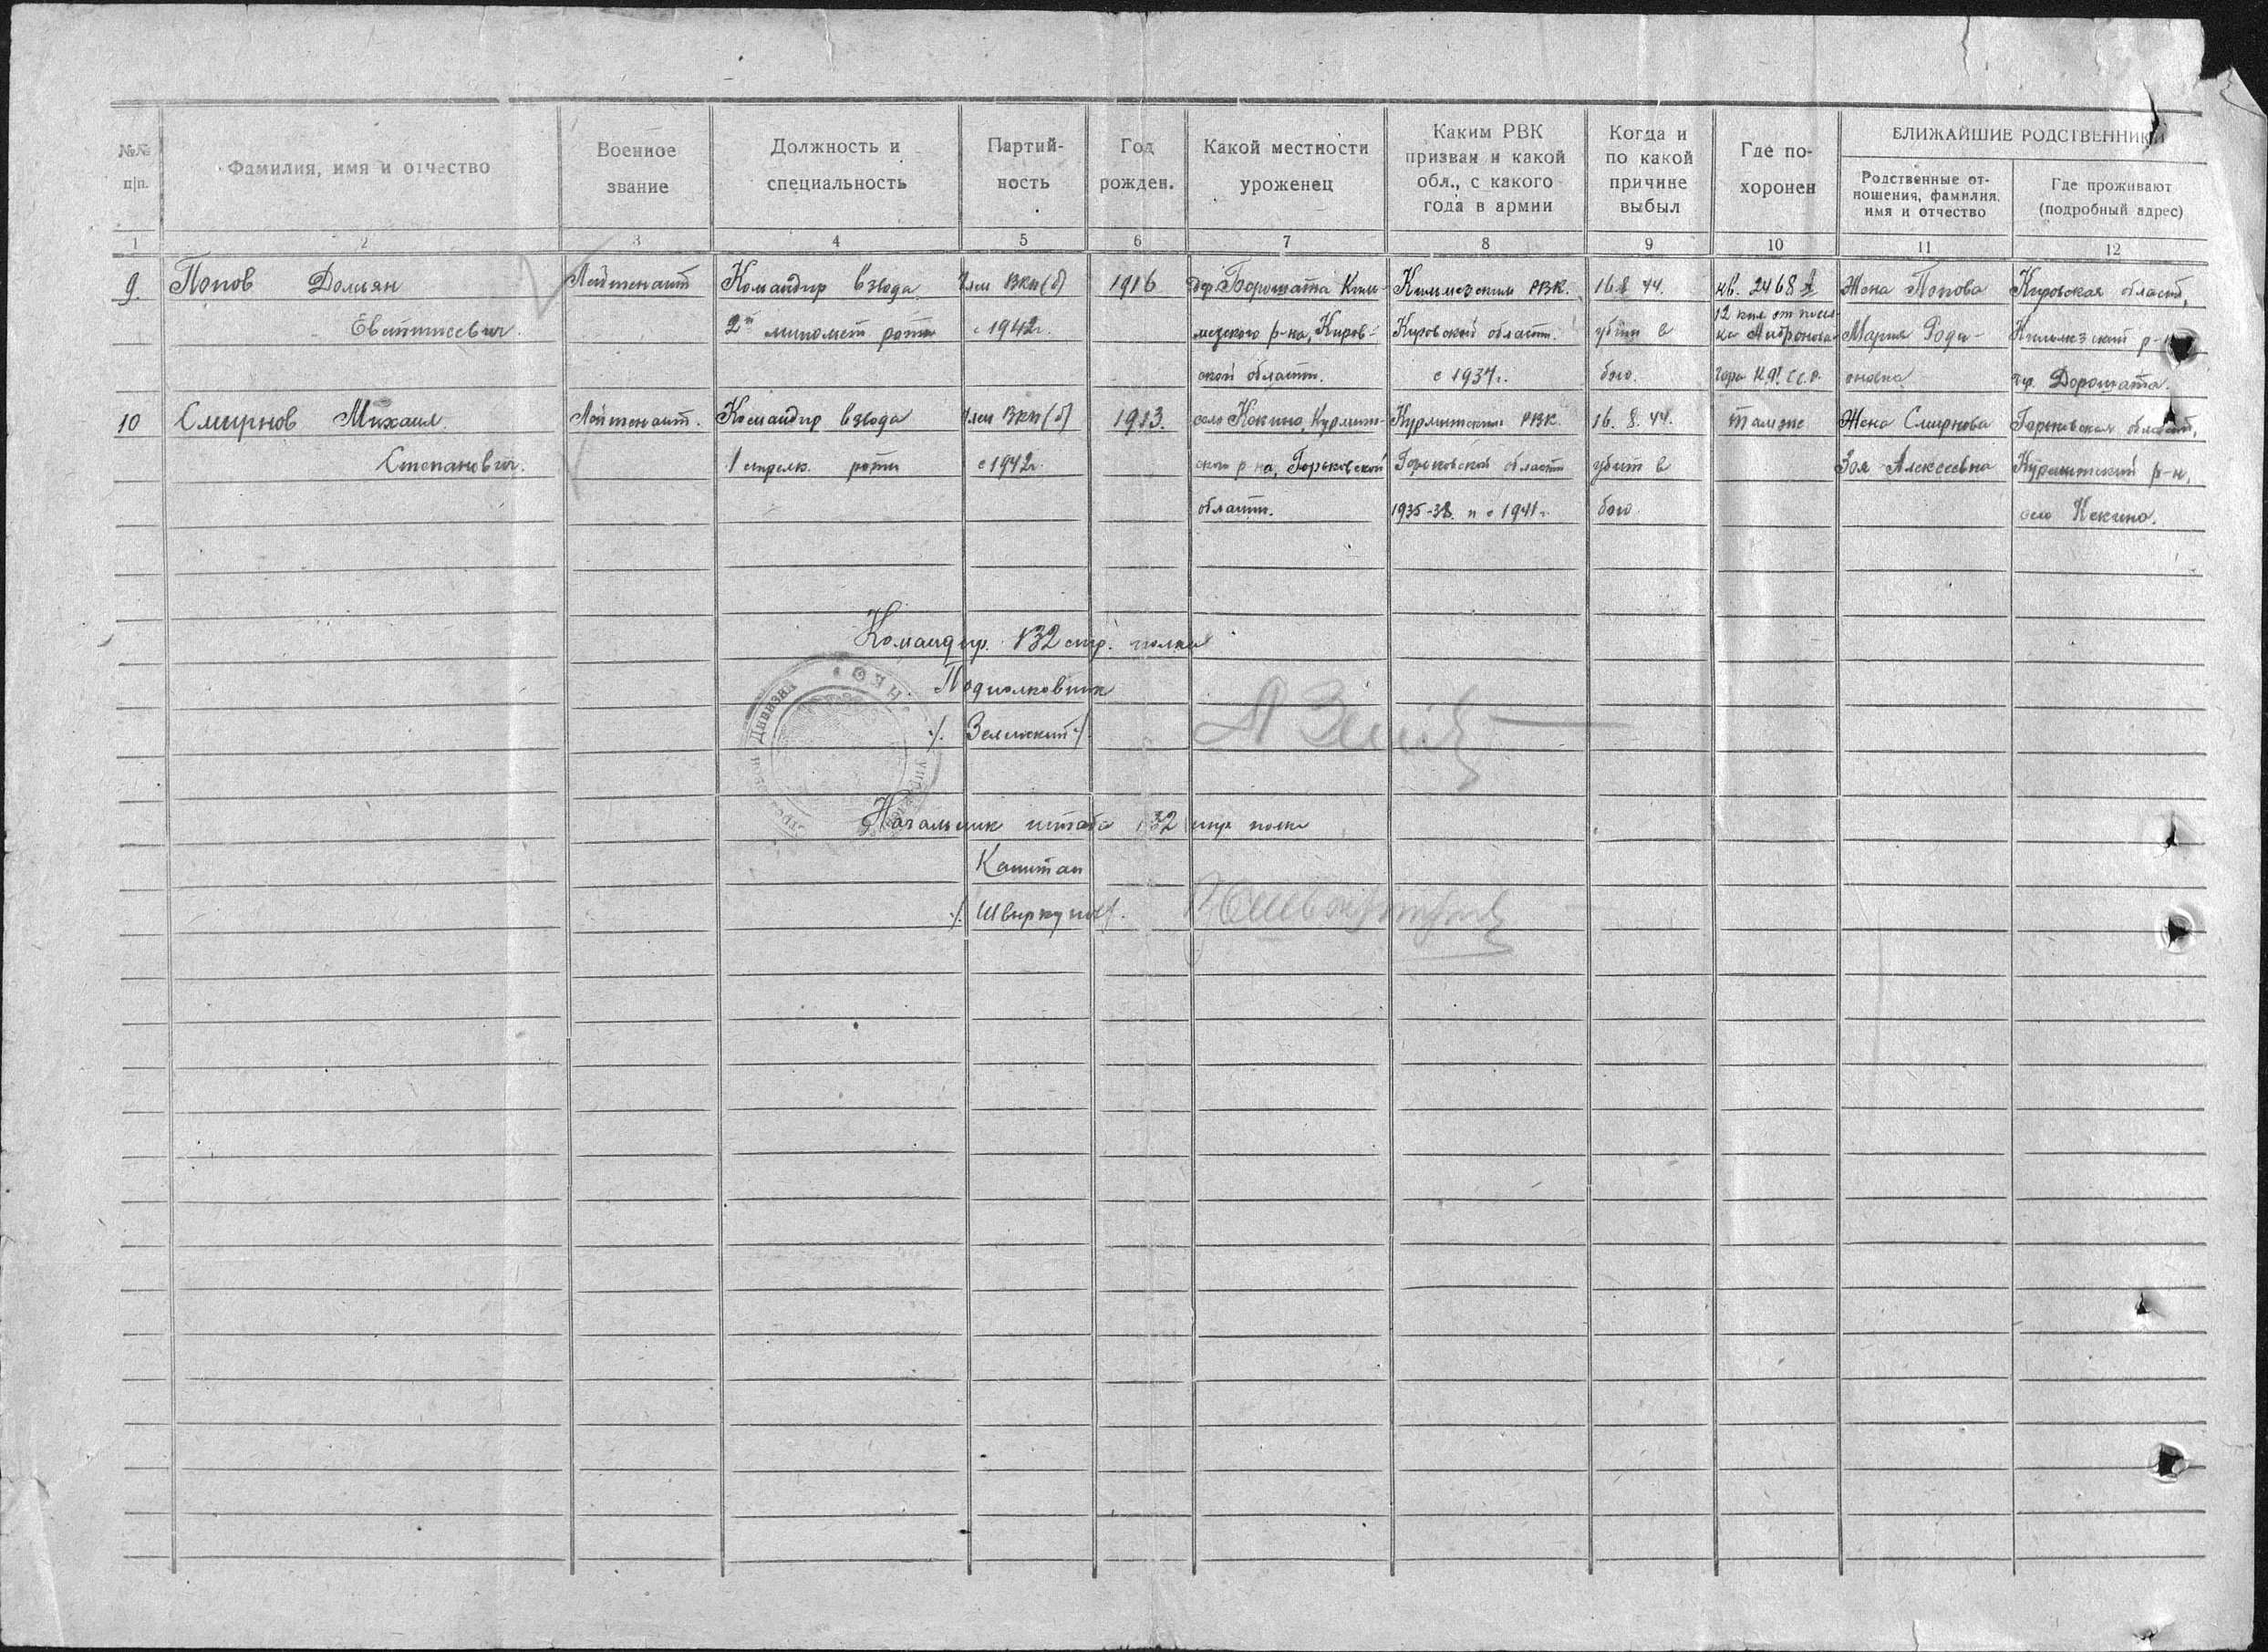 №№ п|п.
Фамилия, имя и отчество
Военное звание
Должность и специальность
Партий-ность
Год рожден.
Какой местности уроженец
Каким РВК призван и какой обл., с какого года в армии
Когда и по какой причине выбыл
Где по-хоронен
БЛИЖАЙШИЕ РОДСТВЕННИКИ
Родственные от-ношения, фамилия, имя и отчество
Где проживают (подробный адрес)
1 2 3 4 5 6 7 8 9 10 11 12
9. Попов Домьян Лейтенант Командир взвода Член ВКП(б) 1916 дер. Дорошата Киль- Кильмезским РВК. 16.8.44. кв. 2468 Жена Попова Кировская область,
Евстигнеевич. 2й миномет роты с 1942г. мезского р-на, Киров- Кировской области. убит в 12 клм от посел- Мария Роди-
ской области. с 1937г. бою. оновна дер. Дорошата.
10 Смирнов Михаил Лейтенант. Командир взвода Член ВКП(б) 1913. село Кекино, Курмыш- Курмышским РВК 16.8.44. там же Жена Смирнова Горьковская область,
Степанович. 1 стрелк. роты с 1942г. ского р-на, Горьковской Горьковской области убит в Зоя Алексеевна Курмышский р-н,
области. 1935-38 и с 1941г. бою село Кекино.
Командир 132 стр. полка
Подполковник
/. Зелинский ./
Начальник штаба 132 стр полка
Капитан